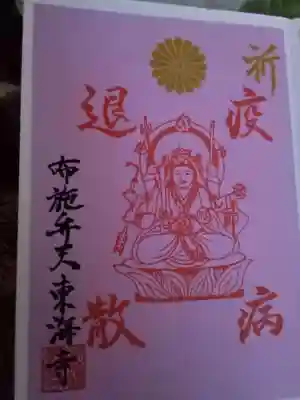 祈
疫病
退散
布施弁天東海寺